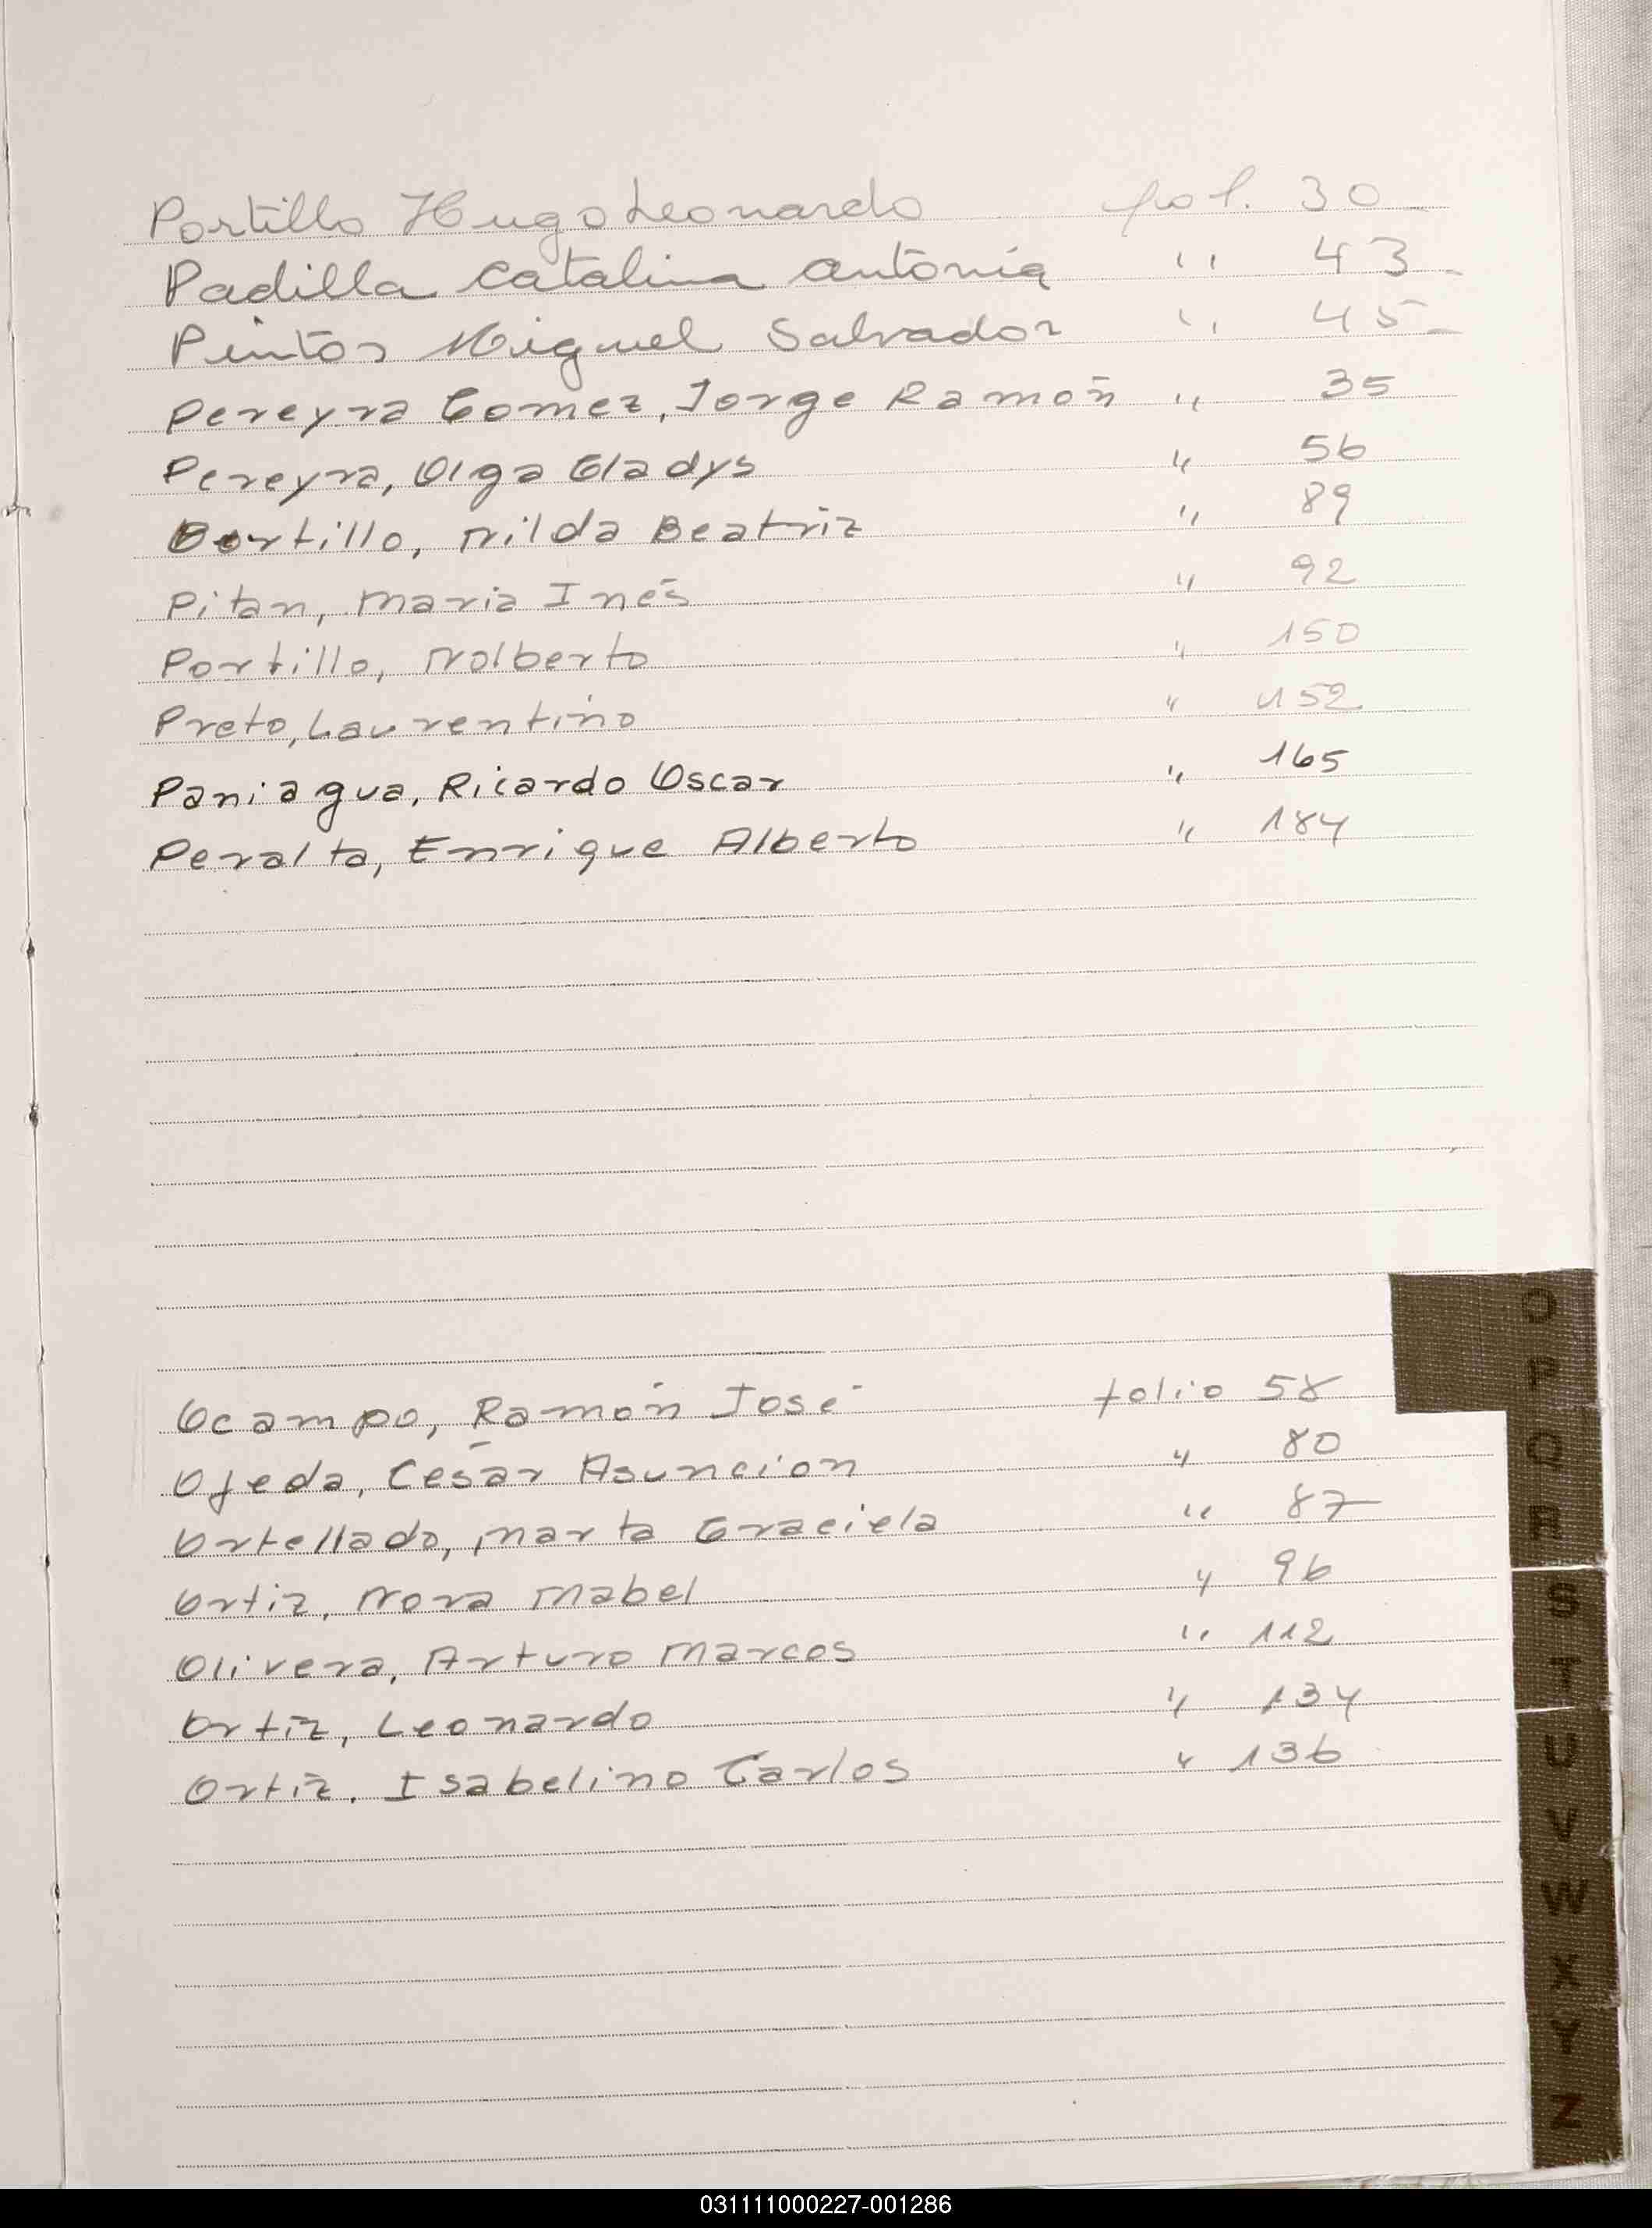 Portillo Hugo Leonardo fol. 30 -
Padilla Catalina Antonia " 43 -
Pintos Miguel Salvador " 45 -
Pereyra Gomez, Jorge Ramón " 35
Pereyra, Olga Gladys " 56
Portillo, Nilda Beatriz " 89
Pitan, Maria Inés " 92
Portillo, Nolberto " 150
Preto, Laurentino " 152
Paniagua, Ricardo Oscar " 165
Peralta, Enrique Alberto " 184
Ocampo, Ramón José folio 58
Ojeda, César Asuncion " 80
Ortellado, Marta Graciela " 87
Ortiz, Nora Mabel " 96
Olivera, Arturo Marcos " 112
Ortiz, Leonardo " 134
Ortiz, Isabelino Carlos " 136
O
P
Q
R
S
T
U
V
W
X
Y
Z
031111000227-001286